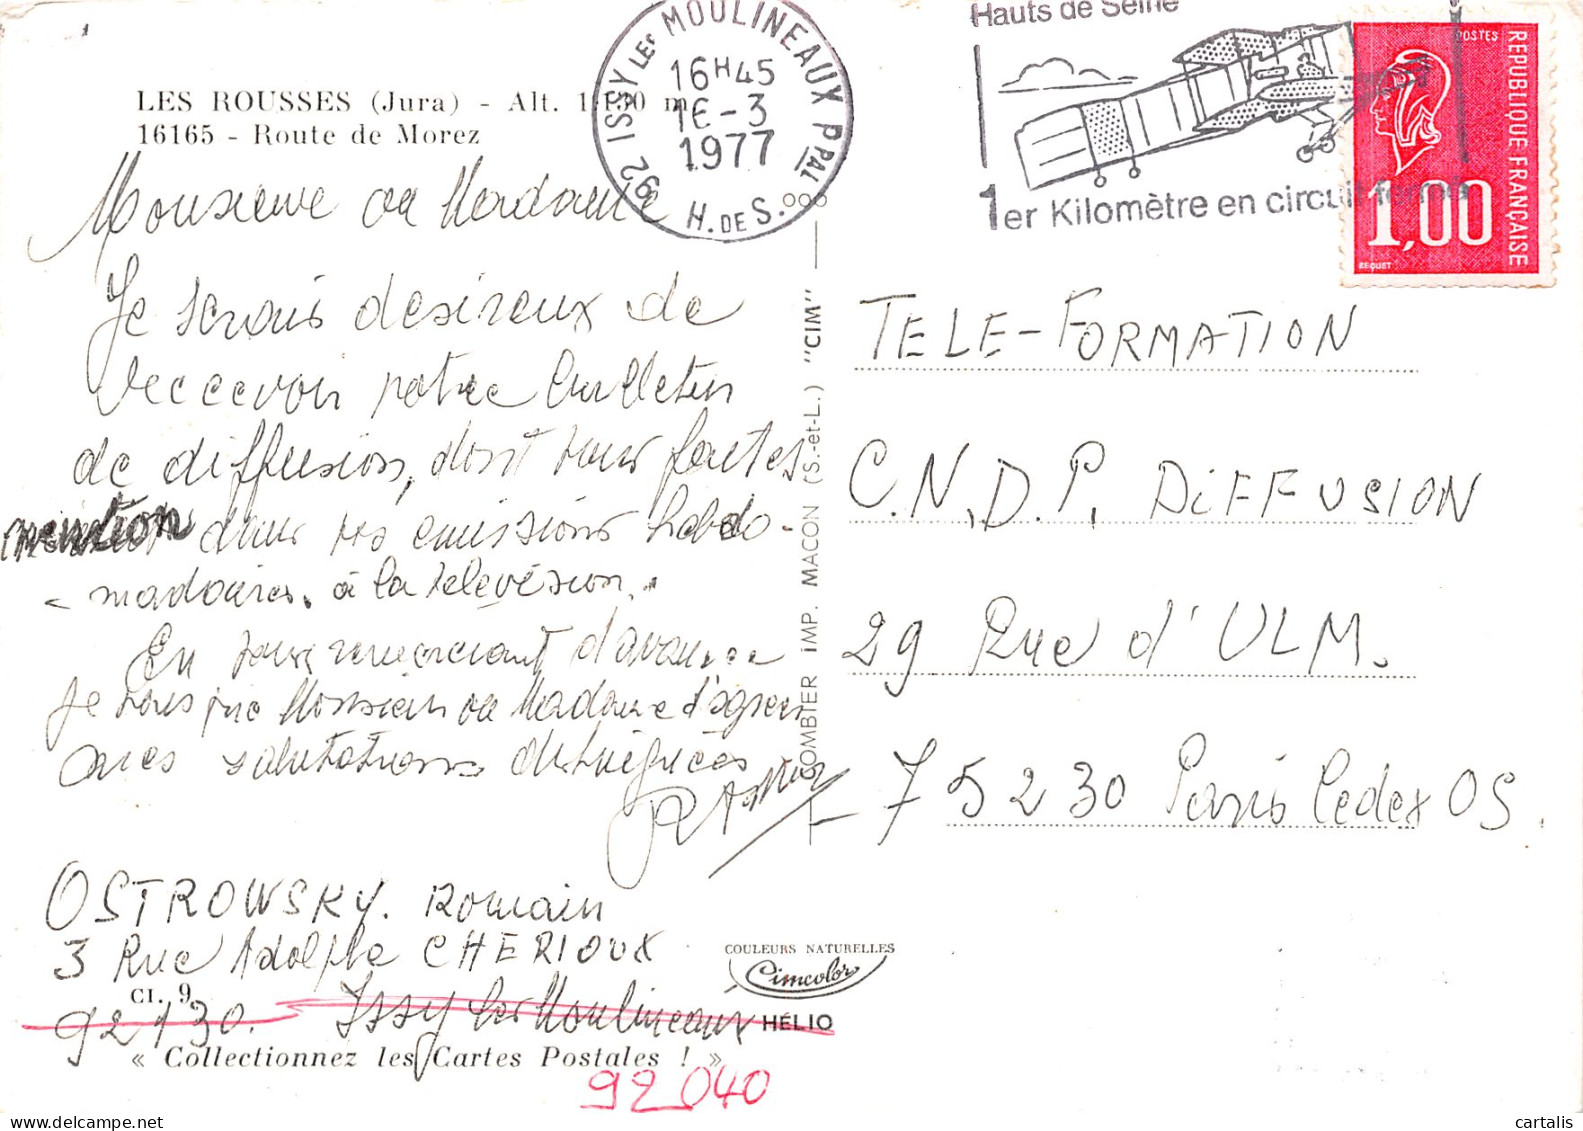 LES ROUSSES (Jura) - Alt.
16165 - Route de Morez
92 ISSY LES MOULINEAUX PPAL
16H45
16-3
1977
H. DE S.
Hauts de Seine
1er Kilomètre en circuit fermé
POSTES
REPUBLIQUE FRANÇAISE
1,00
BEQUET
Monsieur ou Madame
Je serais desireux de
recevoir votre bulletin
de diffusion, dont vous faites
mention dans vos emissions hebdo-
- madaires. à la televésion.
En vous remerciant d'avance
Je vous prie Monsieur ou Madame d'agreer
mes salutations distinguées
OSTROWSKY. Romain
3 Rue Adolphe CHERIOUX
CI. 9
92130. Issy les Moulineaux
« Collectionnez les Cartes Postales ! »
92040
COMBIER IMP. MACON (S.-et-L.) "CIM"
COULEURS NATURELLES
Cimcolor
HÉLIO
TELE-FORMATION
C.N.D.P. DIFFUSION
29 Rue d'ULM.
75230 Paris Cedex 05.
cartalis